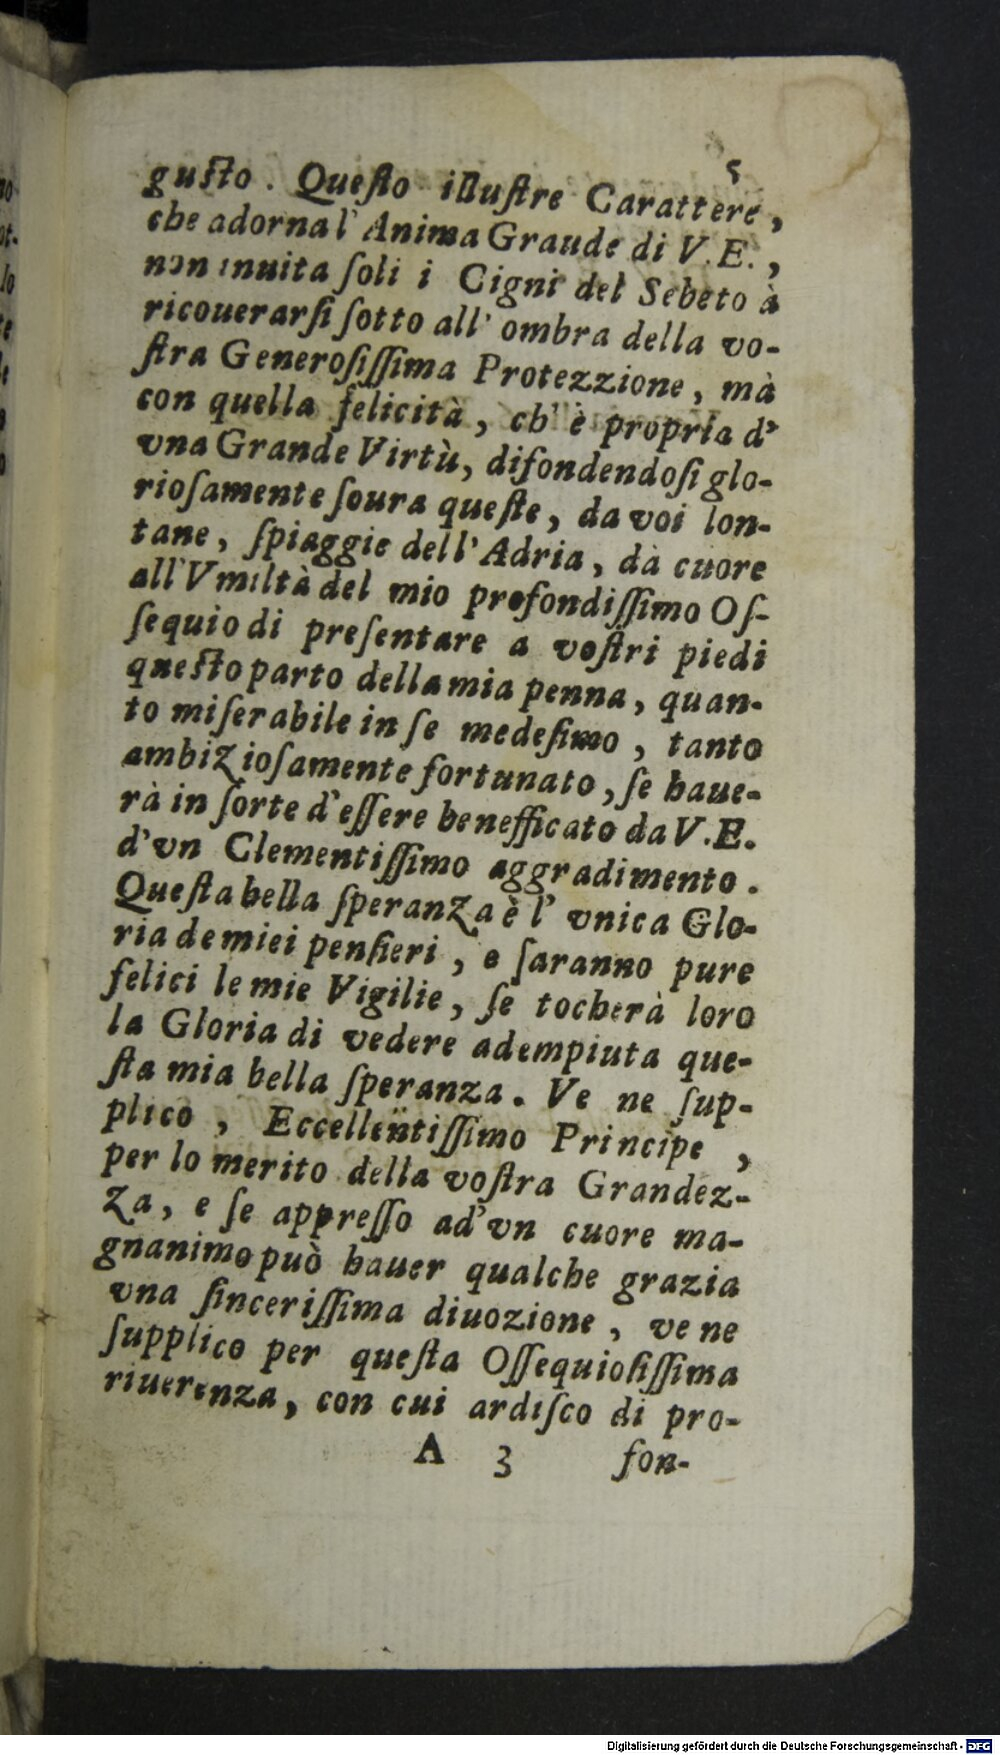 5
guſto. Queſto illuſtre Carattere,
che adorna l' Anima Graude di V.E.,
non inuita ſoli i Cigni del Sebeto à
ricouerarſi ſotto all' ombra della vo-
ſtra Generoſiſſima Protezzione, mà
con quella felicità, ch' è propria d'
vna Grande Virtù, difondendoſi glo-
rioſamente ſoura queſte, da voi lon-
tane, ſpiaggie dell' Adria, dà cuore
all' Vmiltà del mio profondiſſimo Oſ-
ſequio di preſentare a voſtri piedi
queſto parto della mia penna, quan-
to miſerabile in ſe medeſimo, tanto
ambizioſamente fortunato, ſe haue-
rà in ſorte d'eſſere benefficato da V.E.
d'vn Clementiſſimo aggradimento.
Queſta bella ſperanza è l' vnica Glo-
ria de miei penſieri, e ſaranno pure
felici le mie Vigilie, ſe tocherà loro
la Gloria di vedere adempiuta que-
ſta mia bella ſperanza. Ve ne ſup-
plico, Eccellentiſſimo Principe,
per lo merito della voſtra Grandez-
za, e ſe appreſſo ad'vn cuore ma-
gnanimo può hauer qualche grazia
vna ſinceriſſima diuozione, ve ne
ſupplico per queſta Oſſequioſiſſima
riuerenza, con cui ardiſco di pro-
A 3 fon-
Digitalisierung gefördert durch die Deutsche Forschungsgemeinschaft - DFG